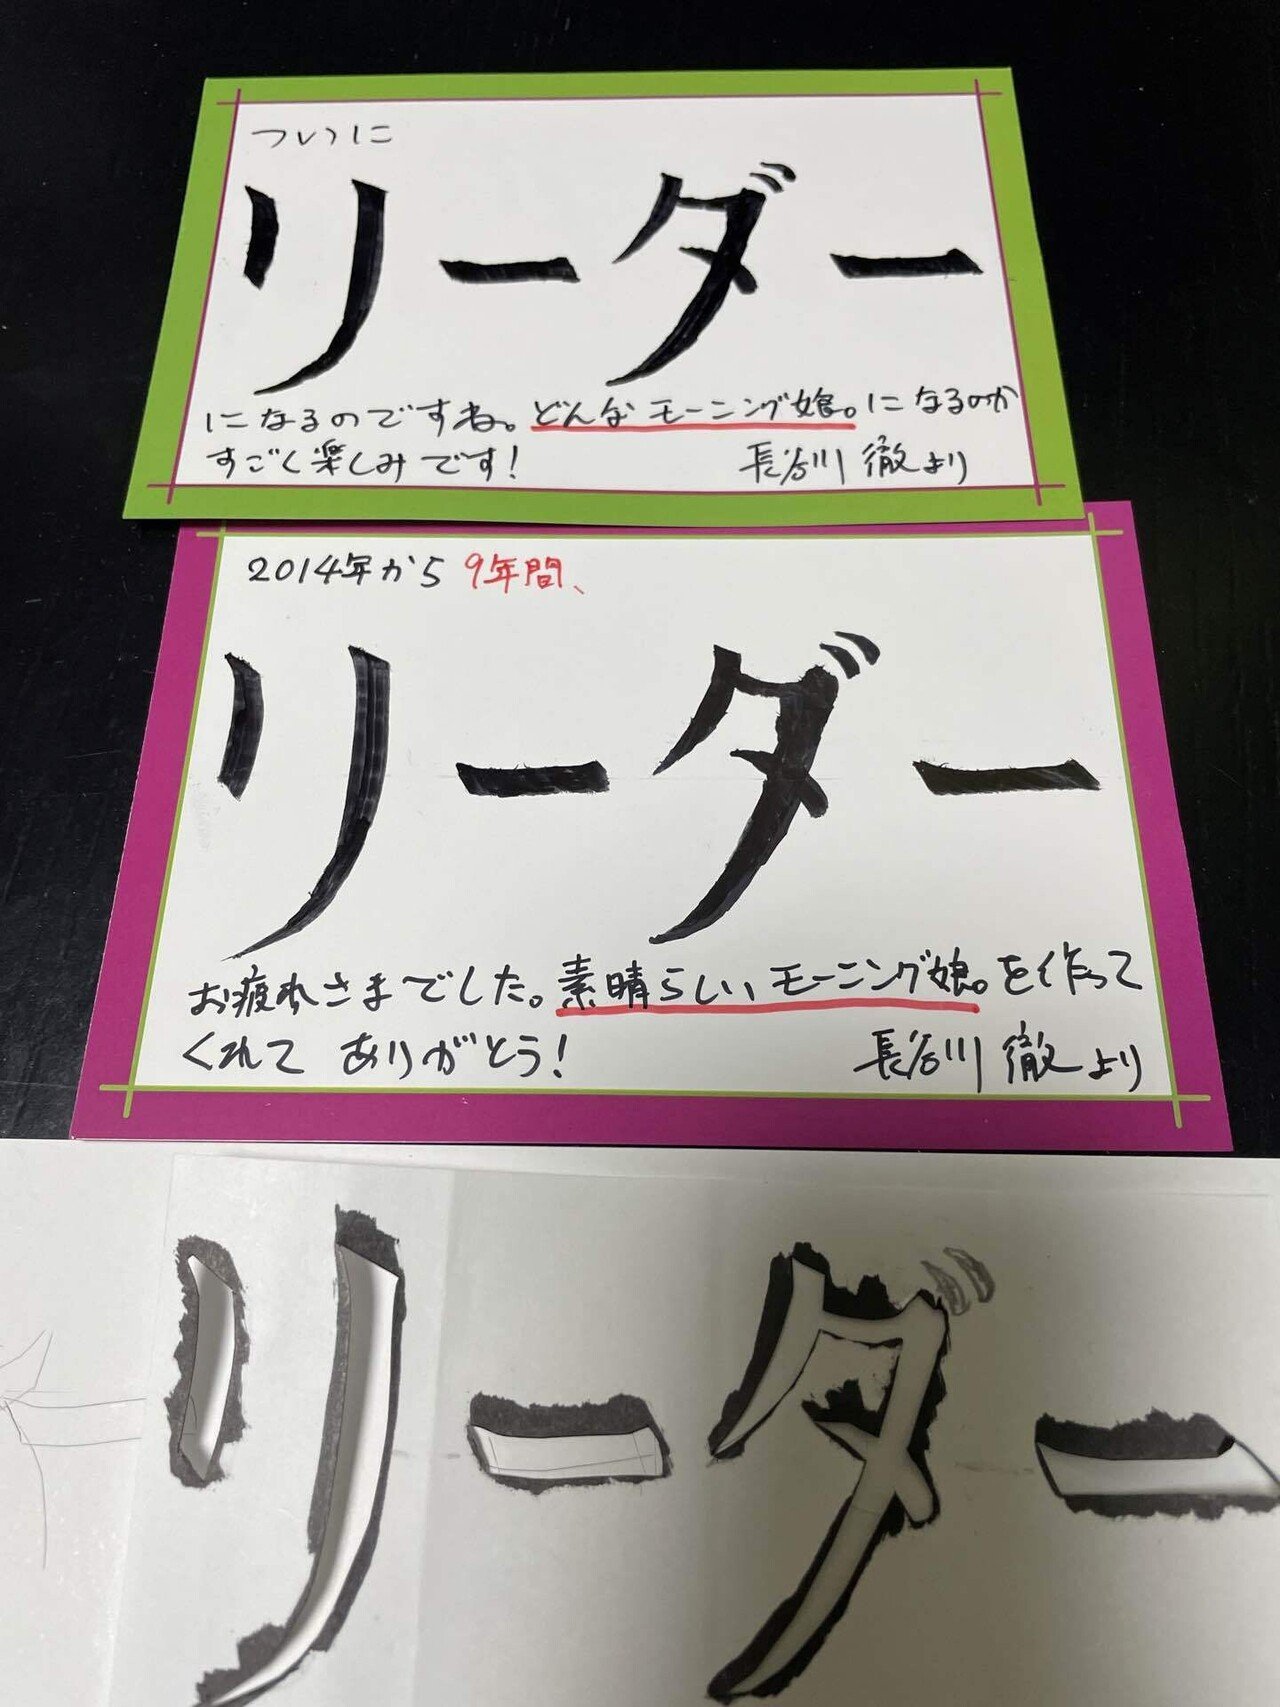 ついに
リーダー
になるのですね。どんなモーニング娘。になるのか
すごく楽しみです! 長谷川 徹より
2014年から 9年間、
リーダー
お疲れさまでした。素晴らしいモーニング娘。を作って
くれて ありがとう! 長谷川 徹より
リーダー